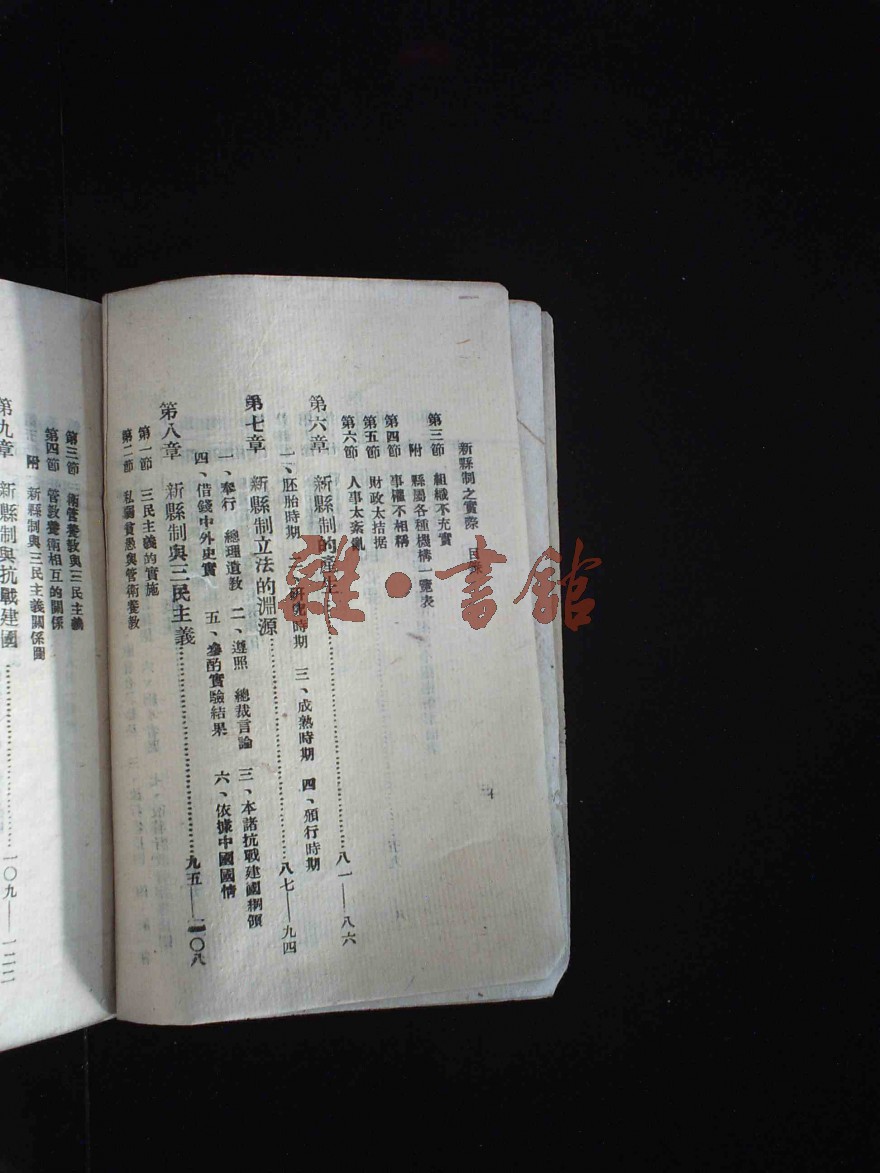 新縣制之實際
第三節 組織不充實
附 縣屬各種機構一覽表
第四節 事權不相稱
第五節 財政太拮据
第六節 人事太紊亂
第六章 新縣制的產生……八一——八六
一、胚胎時期 二、研究時期 三、成熟時期 四、頒行時期
第七章 新縣制立法的淵源……八七——九四
一、奉行 總理遺教 二、遵照 總裁言論 三、本諸抗戰建國綱領
四、借錢中外史實 五、參酌實驗結果 六、依據中國國情
第八章 新縣制與三民主義……九五——一〇八
第一節 三民主義的實施
第二節 私弱貧愚與管衛養教
第三節 衛管養教與三民主義
第四節 管教養衛相互的關係
附 新縣制與三民主義關係圖
第九章 新縣制與抗戰建國……一〇九——一二二
雜·書館